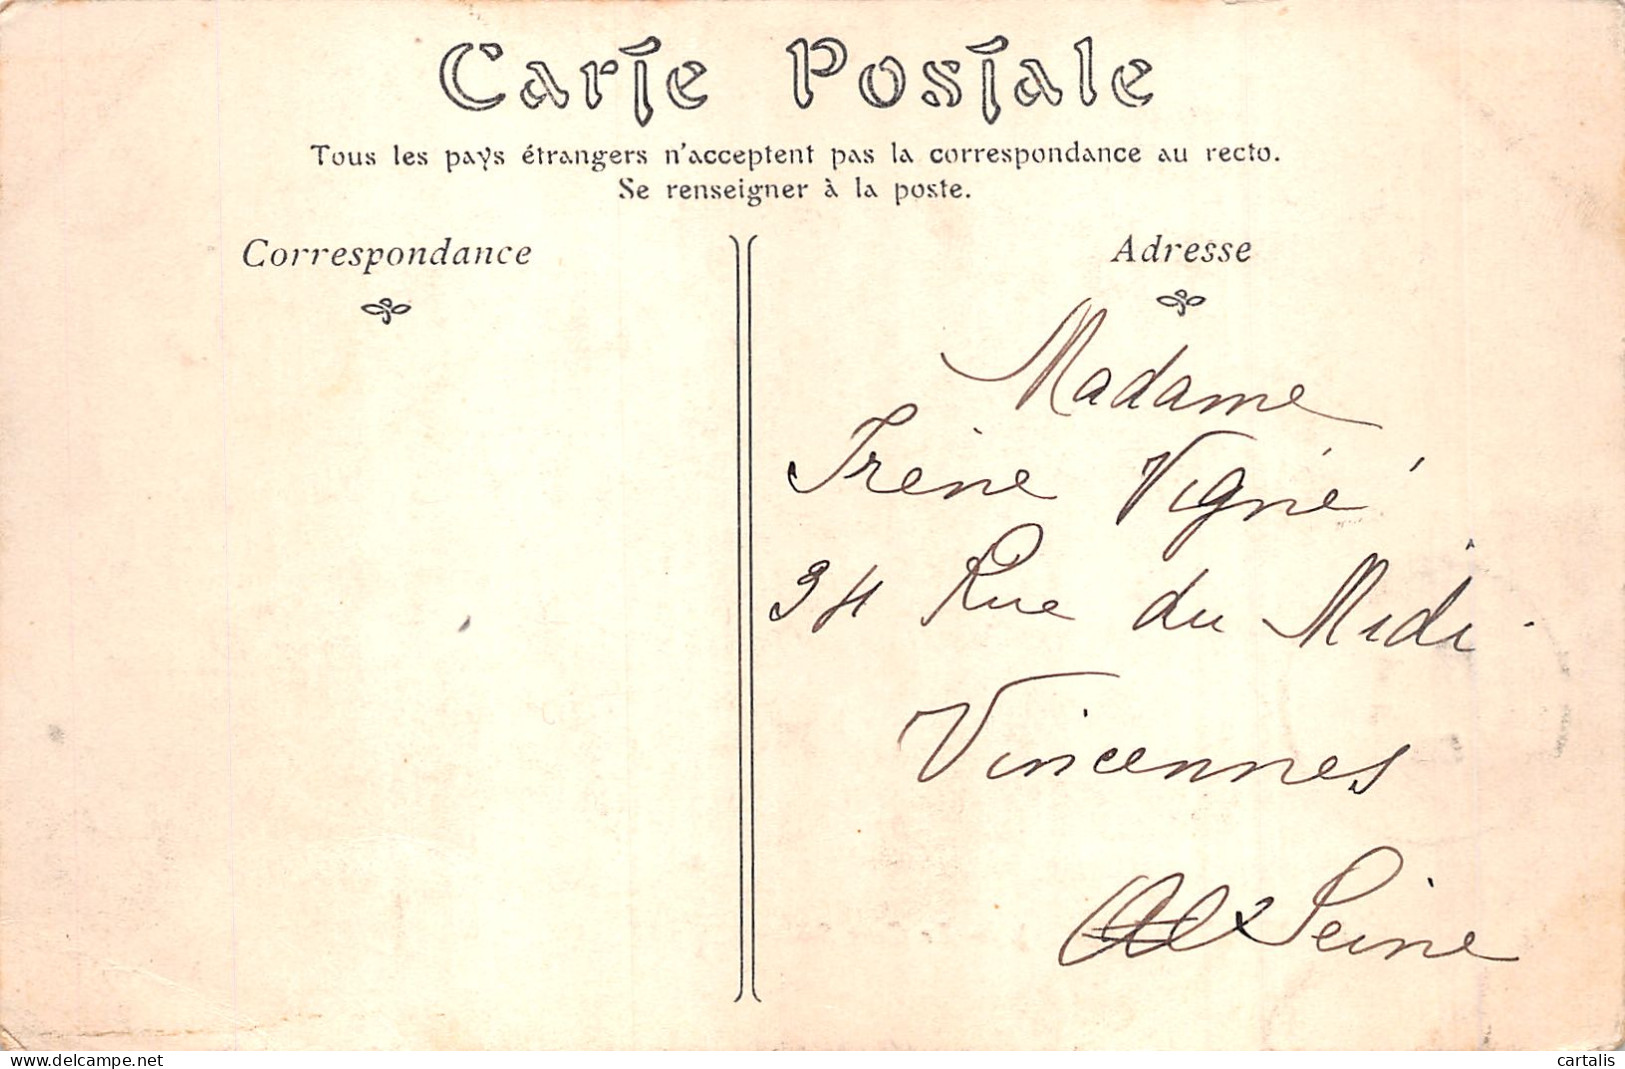 Carte Postale
Tous les pays étrangers n'acceptent pas la correspondance au recto.
Se renseigner à la poste.
Correspondance
Adresse
Madame
Irène Vigné
34 Rue du Midi
Vincennes
Seine
www.delcampe.net
cartalis